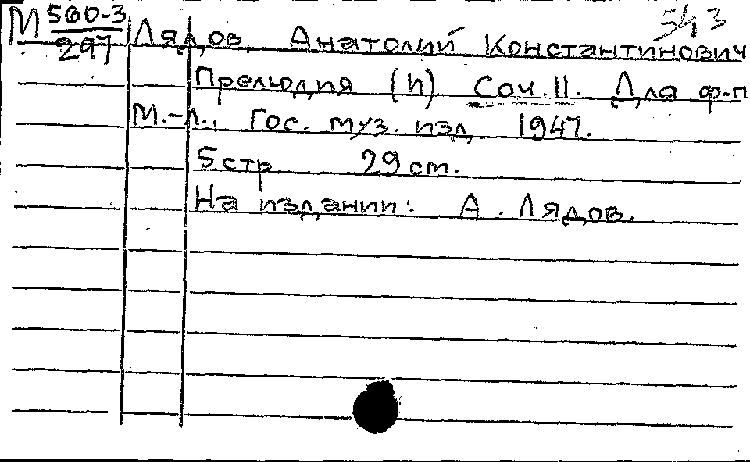 М 560-3/297
543
Лядов, Анатолий Константинович
Прелюдия (h) Соч. 11. Для ф-п
М.-Л., Гос. муз. изд. 1947.
5 стр. 29 cm.
На издании: А. Лядов.